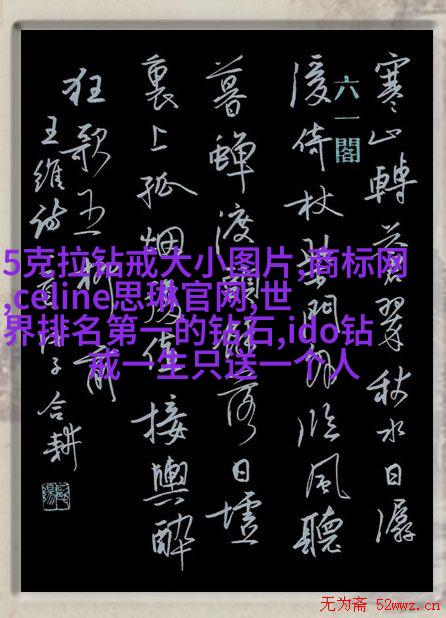 寒山轉蒼翠秋水日潺
六一閣
湲倚杖柴門外臨風聽
暮蟬渡頭餘落日墟
裏上孤烟復值接輿醉
狂歌五柳前
王維詩 子合耕
5克拉钻戒大小图片,商标网
,celine思琳官网,世
界排名第一的钻石,ido钻
戒一生只送一个人
无为斋 52wwz.cn